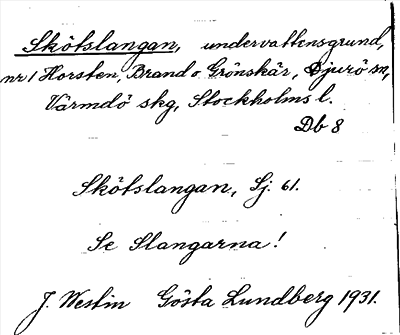 Skötslangan, undervattensgrund,
nr 1 Horsten, Brand o. Grönskär, Djurö sn,
Värmdö skg, Stockholms l.
Db 8
Skötslangan, Sj. 61.
Se Slangarna!
J. Westin Gösta Lundberg 1931.